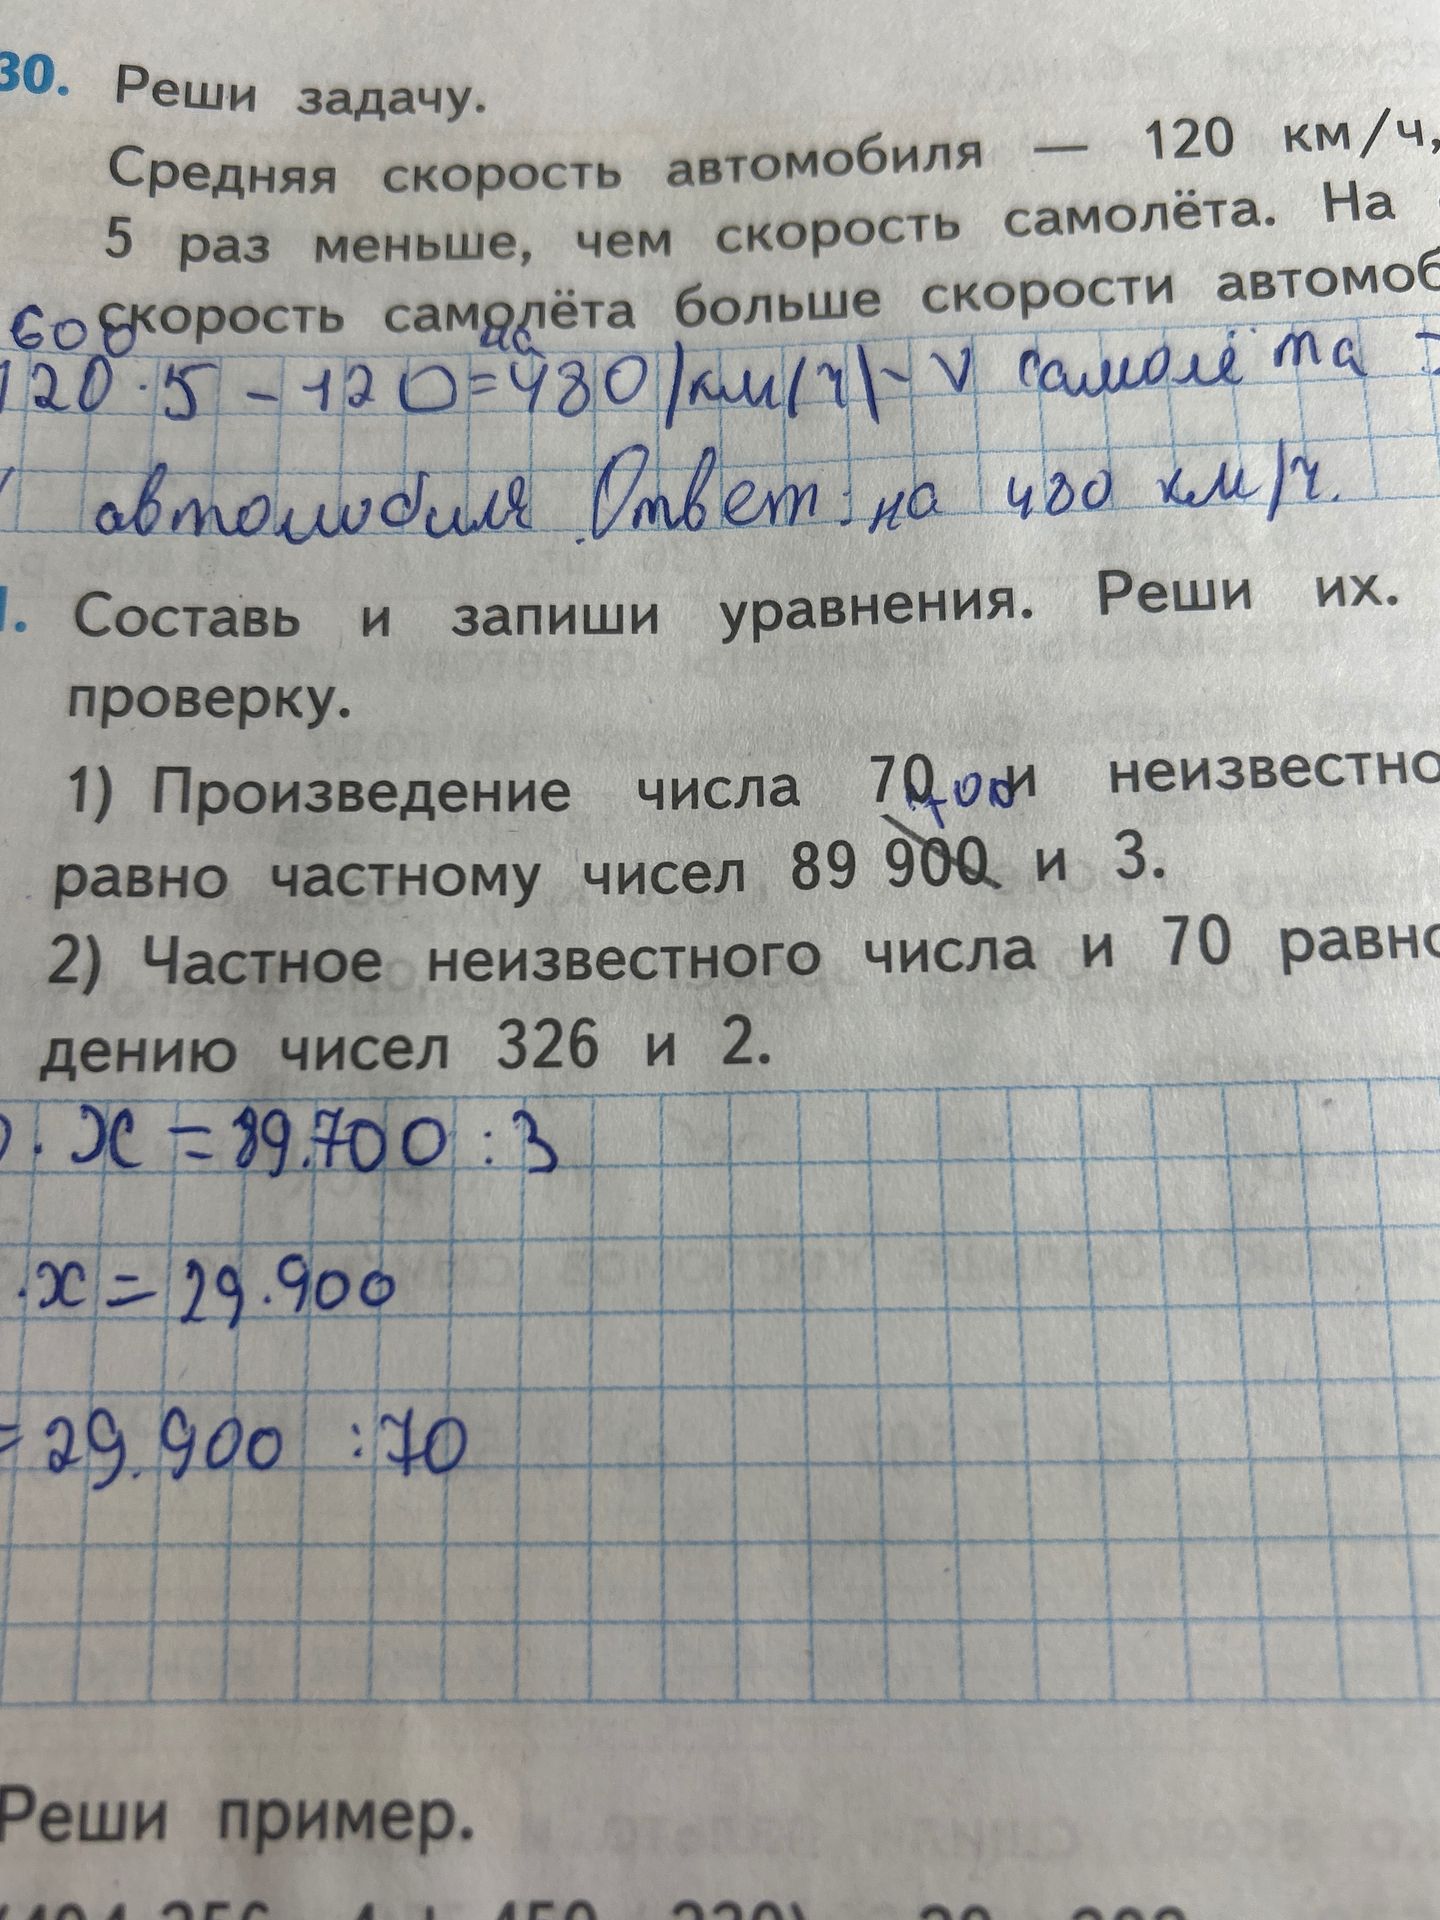 30. Реши задачу.
Средняя скорость автомобиля — 120 км/ч,
5 раз меньше, чем скорость самолёта. На
скорость самолёта больше скорости автомоб
600 на
120·5 - 120=480(км/ч)- v самолёта >
автомобиля. Ответ: на 480 км/ч.
1. Составь и запиши уравнения. Реши их.
проверку.
1) Произведение числа 70 и неизвестно
700
равно частному чисел 89 900 и 3.
2) Частное неизвестного числа и 70 равно
дению чисел 326 и 2.
0·х=89.700 : 3
·х=29.900
=29.900 :70
Реши пример.